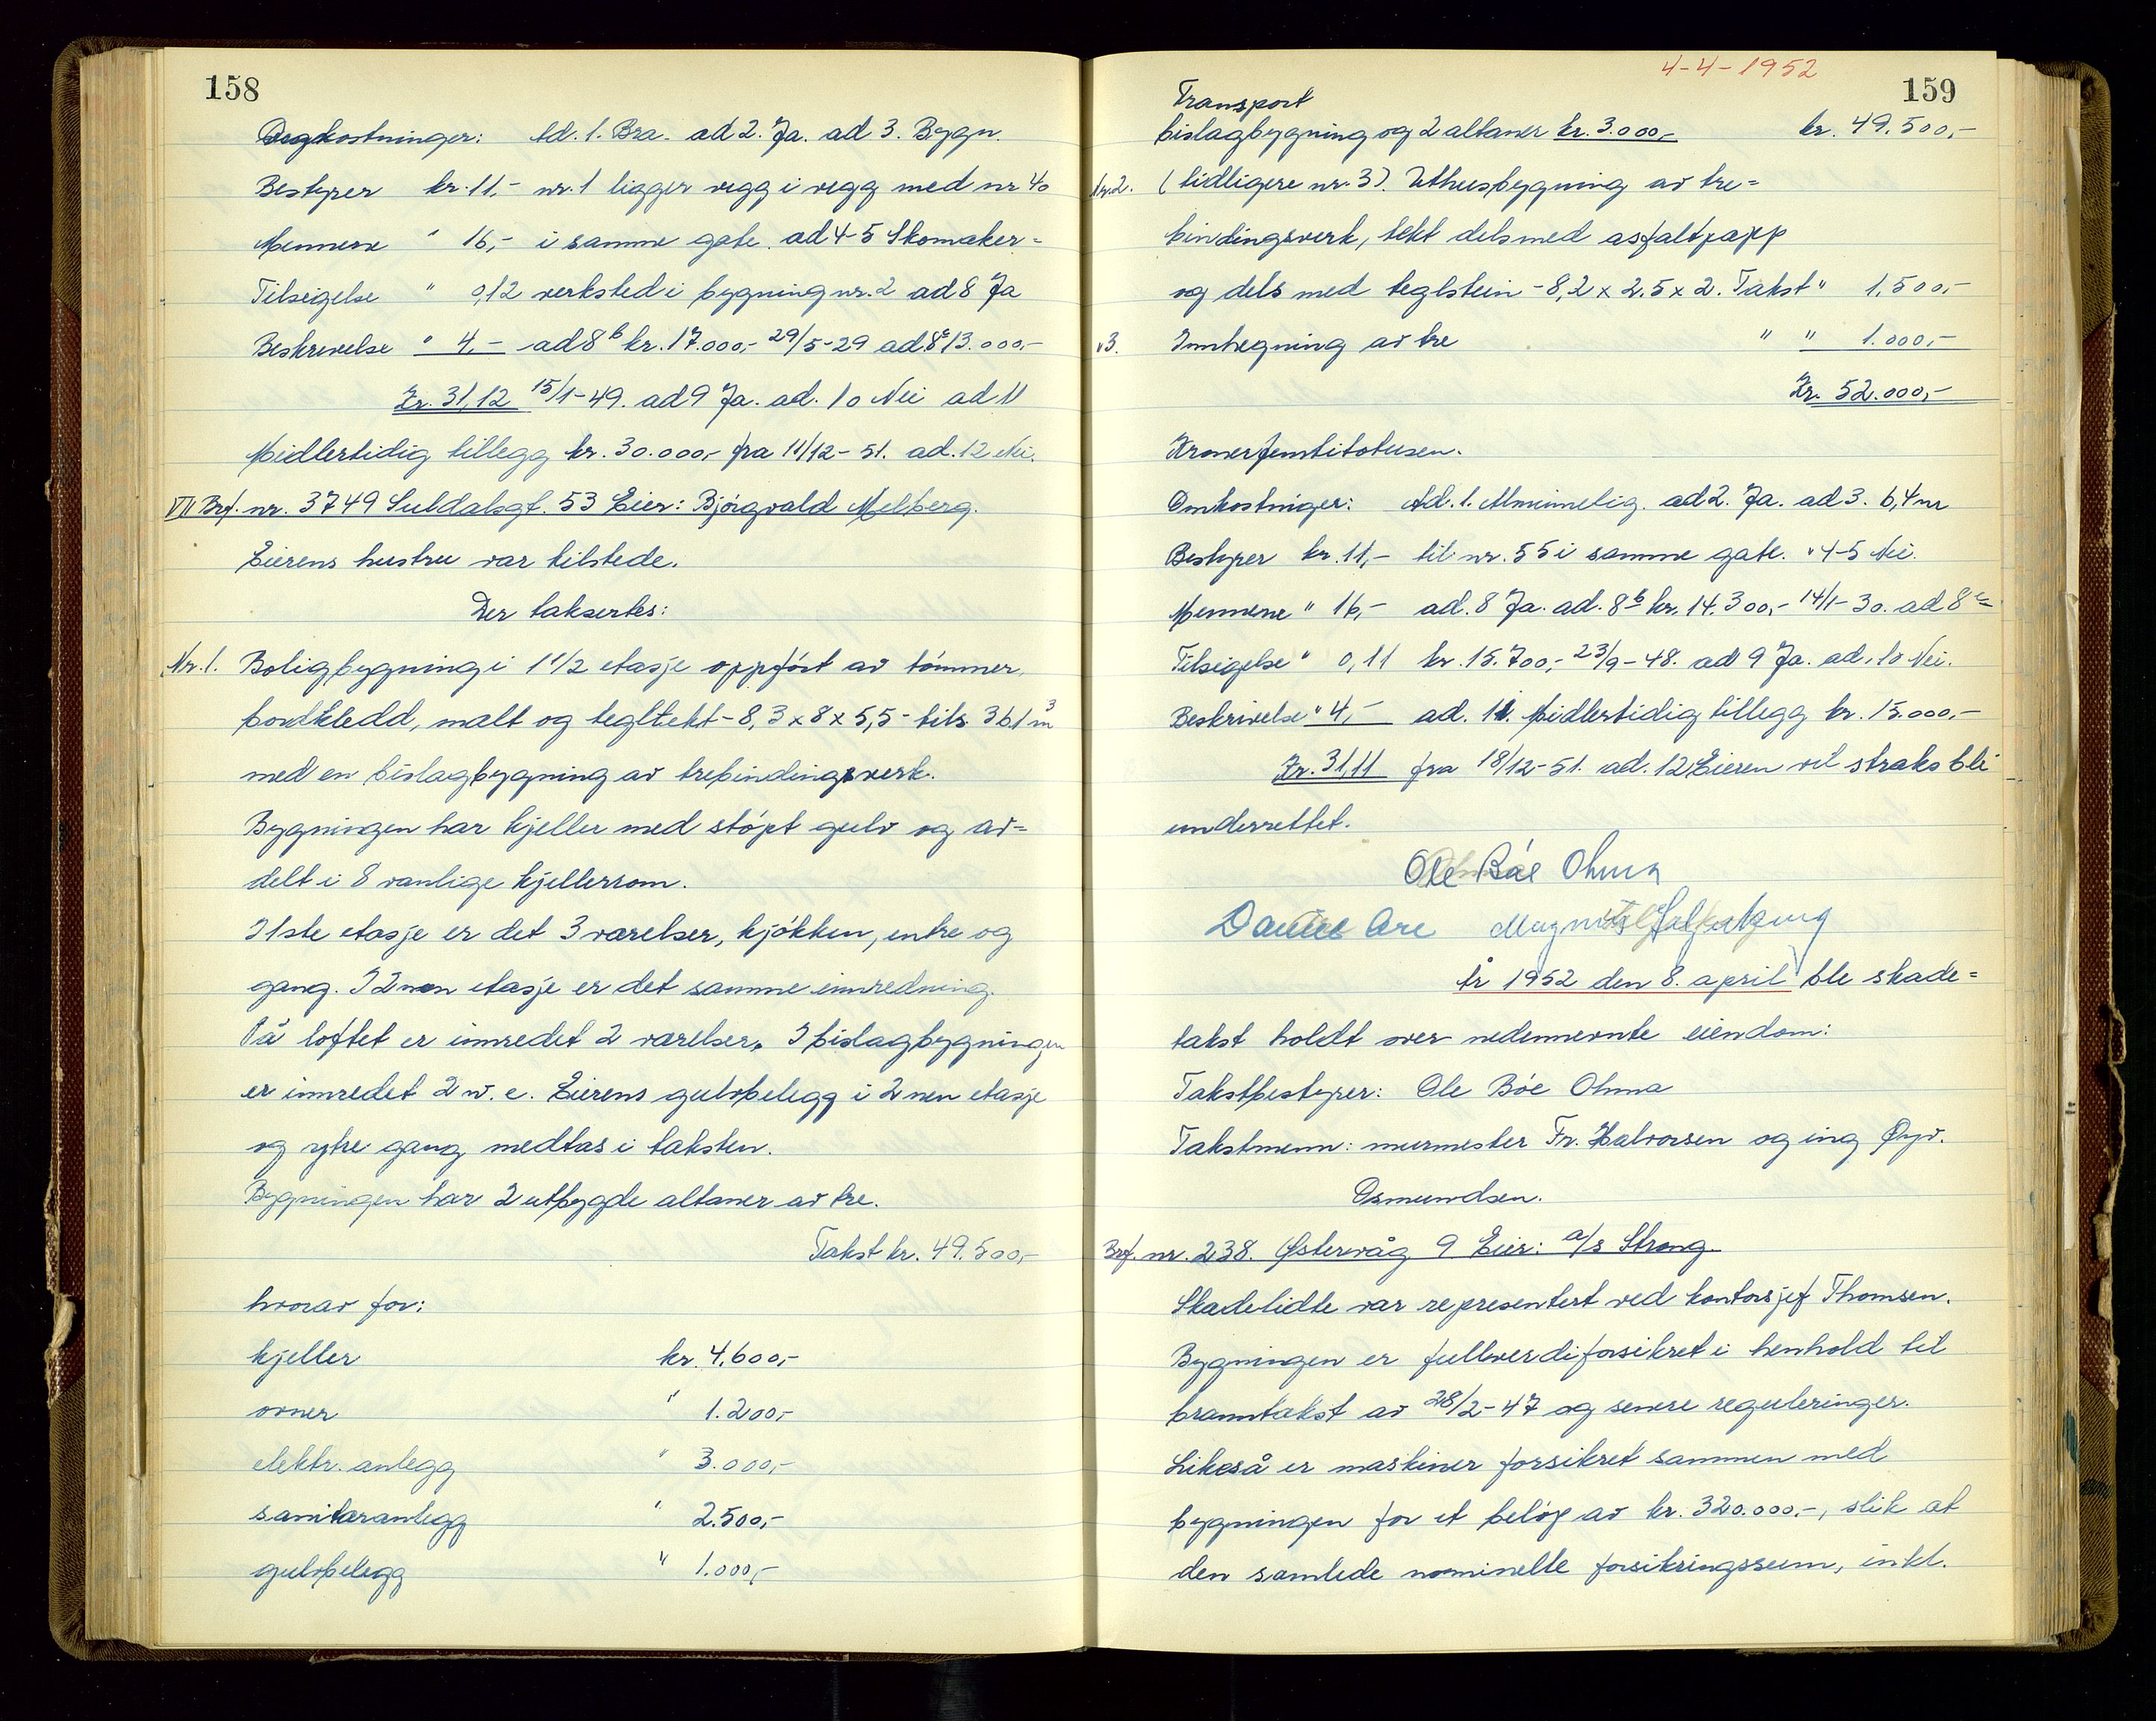 158
Omkostninger: Ad. 1. Bra. ad 2. Ja. ad 3. Bygn.
Bestyrer kr. 11,- nr. 1 ligger vegg i vegg med nr 40
Mennene " 16,- i samme gate. ad 4-5 Skomaker=
Tilsigelse " 0,12 verksted i bygning nr. 2 ad 8 Ja
Beskrivelse " 4,- ad 8 b kr. 17.000,- 29/5-29 ad 8 c 13.000,-
Kr. 31,12 15/1-49. ad 9 Ja. ad. 10 Nei ad 11
Midlertidig tillegg kr. 30.000,- fra 11/12-51. ad. 12 Nei.
VII Brf. nr. 3749 Suldalsgt. 53 Eier: Bjørgvald Melberg.
Eierens hustru var tilstede.
Der taksertes:
Nr. 1. Boligbygning i 1 1/2 etasje oppført av tømmer,
bordkledd, malt og tegltekt - 8,3 x 8 x 5,5 - tils. 361 m3
med en bislagbygning av trebindingsverk.
Bygningen har kjeller med støpt gulv og av=
delt i 8 vanlige kjellerrom.
I 1ste etasje er det 3 værelser, kjøkken, entre og
gang. I 2nen etasje er det samme innredning.
På loftet er innredet 2 værelser. I bislagbygningen
er innredet 2 w. c. Eierens gulvbelegg i 2nen etasje
og ytre gang medtas i taksten.
Bygningen har 2 utbygde altaner av tre.
Takst kr. 49.500,-
hvorav for:
kjeller kr. 4.600,-
ovner " 1.200,-
elektr. anlegg " 3.000,-
sanitæranlegg " 2.500,-
gulvbelegg " 1.000,-
4-4-1952
159
Transport
bislagbygning og 2 altaner kr. 3.000,- kr. 49.500,-
Nr. 2. (tidligere nr. 3). Uthusbygning av tre=
bindingsverk, tekt dels med asfaltpapp
og dels med teglstein - 8,2 x 2.5 x 2. Takst " 1.500,-
" 3. Innhegning av tre " " 1.000,-
Kr. 52.000,-
Kronerfemtitotusen.
Omkostninger: Ad. 1. Alminnelig. ad 2. Ja. ad 3. 6,4 m
Bestyrer kr. 11,- til nr. 55 i samme gate. " 4-5 Nei.
Mennene " 16,- ad. 8 Ja. ad. 8 b kr. 14.300,- 14/1-30. ad 8 c
Tilsigelse " 0,11 kr. 15.700,- 23/9-48. ad 9 Ja. ad. 10 Nei.
Beskrivelse " 4,- ad. 11. Midlertidig tillegg kr. 15.000,-
Kr. 31,11 fra 18/12-51. ad. 12 Eieren vil straks bli
underrettet.
Ole Bøe Ohma
Daniel Are Magnus
År 1952 den 8. april ble skade=
takst holdt over nedennevnte eiendom:
Takstbestyrer: Ole Bøe Ohma
Takstmenn: murmester Fr. Halvorsen og ing Øyv.
Osmundsen.
Brf. nr. 238. Østervåg 9 Eier: a/s Strong.
Skadelidte var representert ved kontorsjef Thomsen.
Bygningen er fullverdiforsikret i henhold til
branntakst av 28/2-47 og senere reguleringer.
Likeså er maskiner forsikret sammen med
bygningen for et beløp av kr. 320.000.-, slik at
den samlede nominelle forsikringssum, inkl.